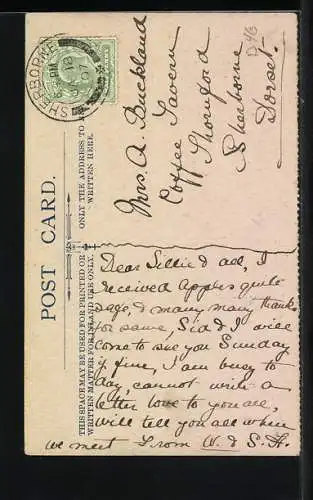 POST CARD.
THIS SPACE MAY BE USED FOR PRINTED OR
WRITTEN MATTER FOR INLAND USE ONLY.
ONLY THE ADDRESS TO
WRITTEN HERE.
SHERBORNE
Mrs. A. Buckland
Coffee Tavern
Thornford
Sherborne
Dorset.
Dear Lillie & all, I
received Apples quite
safe, & many many thanks
for same, Sid & I will
come to see you Sunday
if fine, I am busy to
day, cannot write a
letter love to you all,
will tell you all when
we meet From W. & S. H.